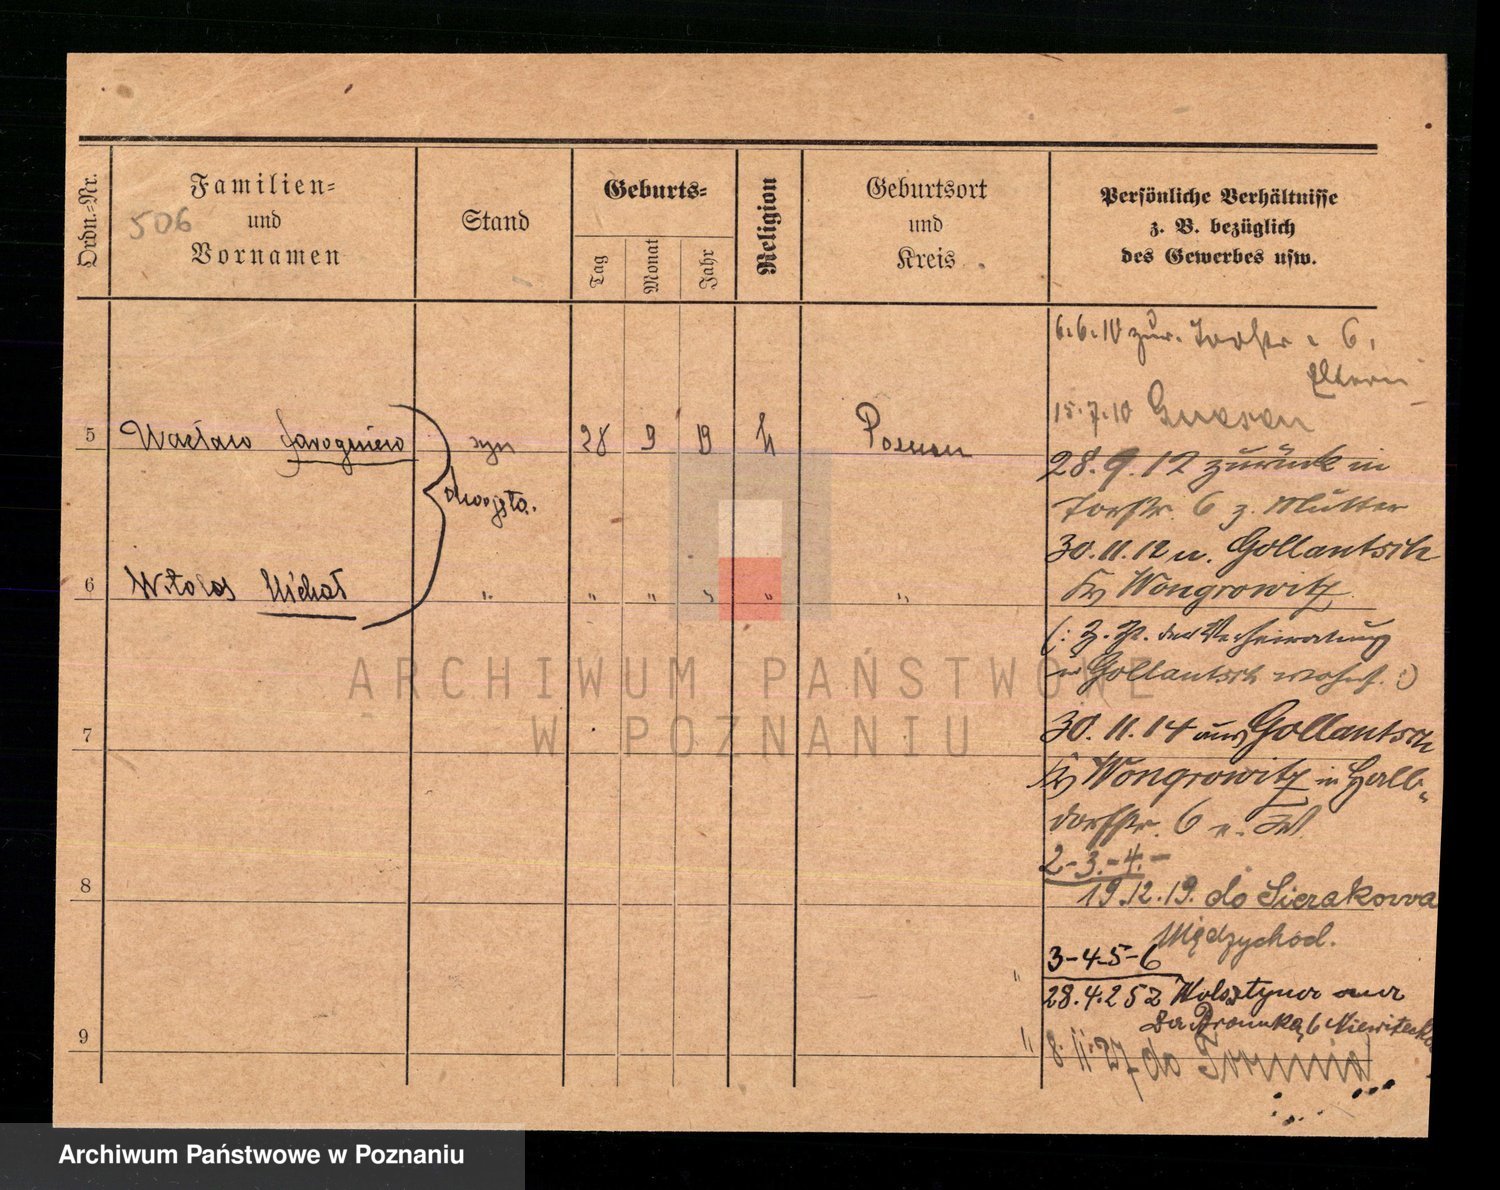 Ordn.-Nr.
Familien-
und
Vornamen
506
Stand
Geburts-
Tag
Monat
Jahr
Religion
Geburtsort
und
Kreis
Persönliche Verhältnisse
z. B. bezüglich
des Gewerbes usw.
6.6.10 zur. Torstr. 6.
Eltern
15.7.10 Gnesen
5 Wacław Jarogniew syn 28 9 19 k Poznan
28.9.12 zurück in
Torstr. 6 z. Mutter
30.11.12 n. Gollantsch
Kr Wongrowitz
6 Witolas Michał " " " " " "
dwojęta.
(: z. Zt. der Verheiratung
in Gollantsch wohnh. :)
30.11.14 aus Gollantsch
7
Kr Wongrowitz in Halb-
dorfstr. 6
2-3.-4.-
8
19.12.19. do Sierakowa
Międzychod.
3-4-5-6
28.4.25 z Wolsztyna
9
8.11.27 do Torunia
ARCHIWUM PAŃSTWOWE
W POZNANIU
Archiwum Państwowe w Poznaniu